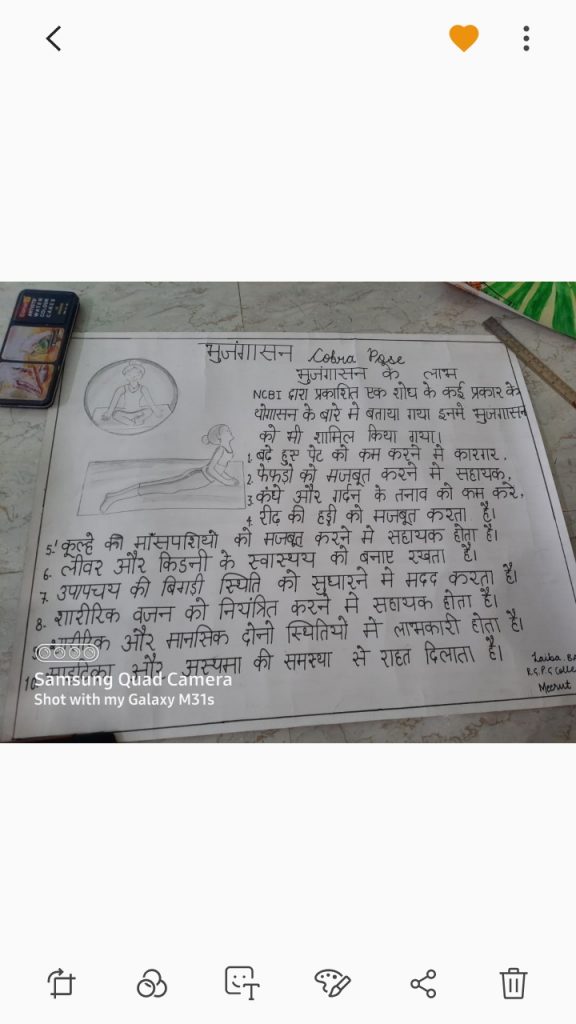 भुजंगासन Cobra Pose
भुजंगासन के लाभ
NCBI द्वारा प्रकाशित एक शोध के कई प्रकार के
योगासन के बारे मे बताया गया इनमे भुजंगासन
को भी शामिल किया गया।
1. बढे हुए पेट को कम करने मे कारगर.
2. फेफडो को मजबूत करने मे सहायक.
3. कंधे और गर्दन के तनाव को कम करे.
4. रीढ की हड्डी को मजबूत करता है।
5. कूल्हे की माँसपशियो को मजबूत करने मे सहायक होता है।
6. लीवर और किडनी के स्वास्थय को बनाए रखता है।
7. उपापचय की बिगडी स्थिति को सुधारने मे मदद करता है।
8. शारीरिक वजन को नियंत्रित करने मे सहायक होता है।
और मानसिक दोनो स्थितियो मे लाभकारी होता है।
10. और अस्थमा की समस्या से राहत दिलाता है।
Laiba. BA
R.G.P.G Colle
Meerut
Samsung Quad Camera
Shot with my Galaxy M31s